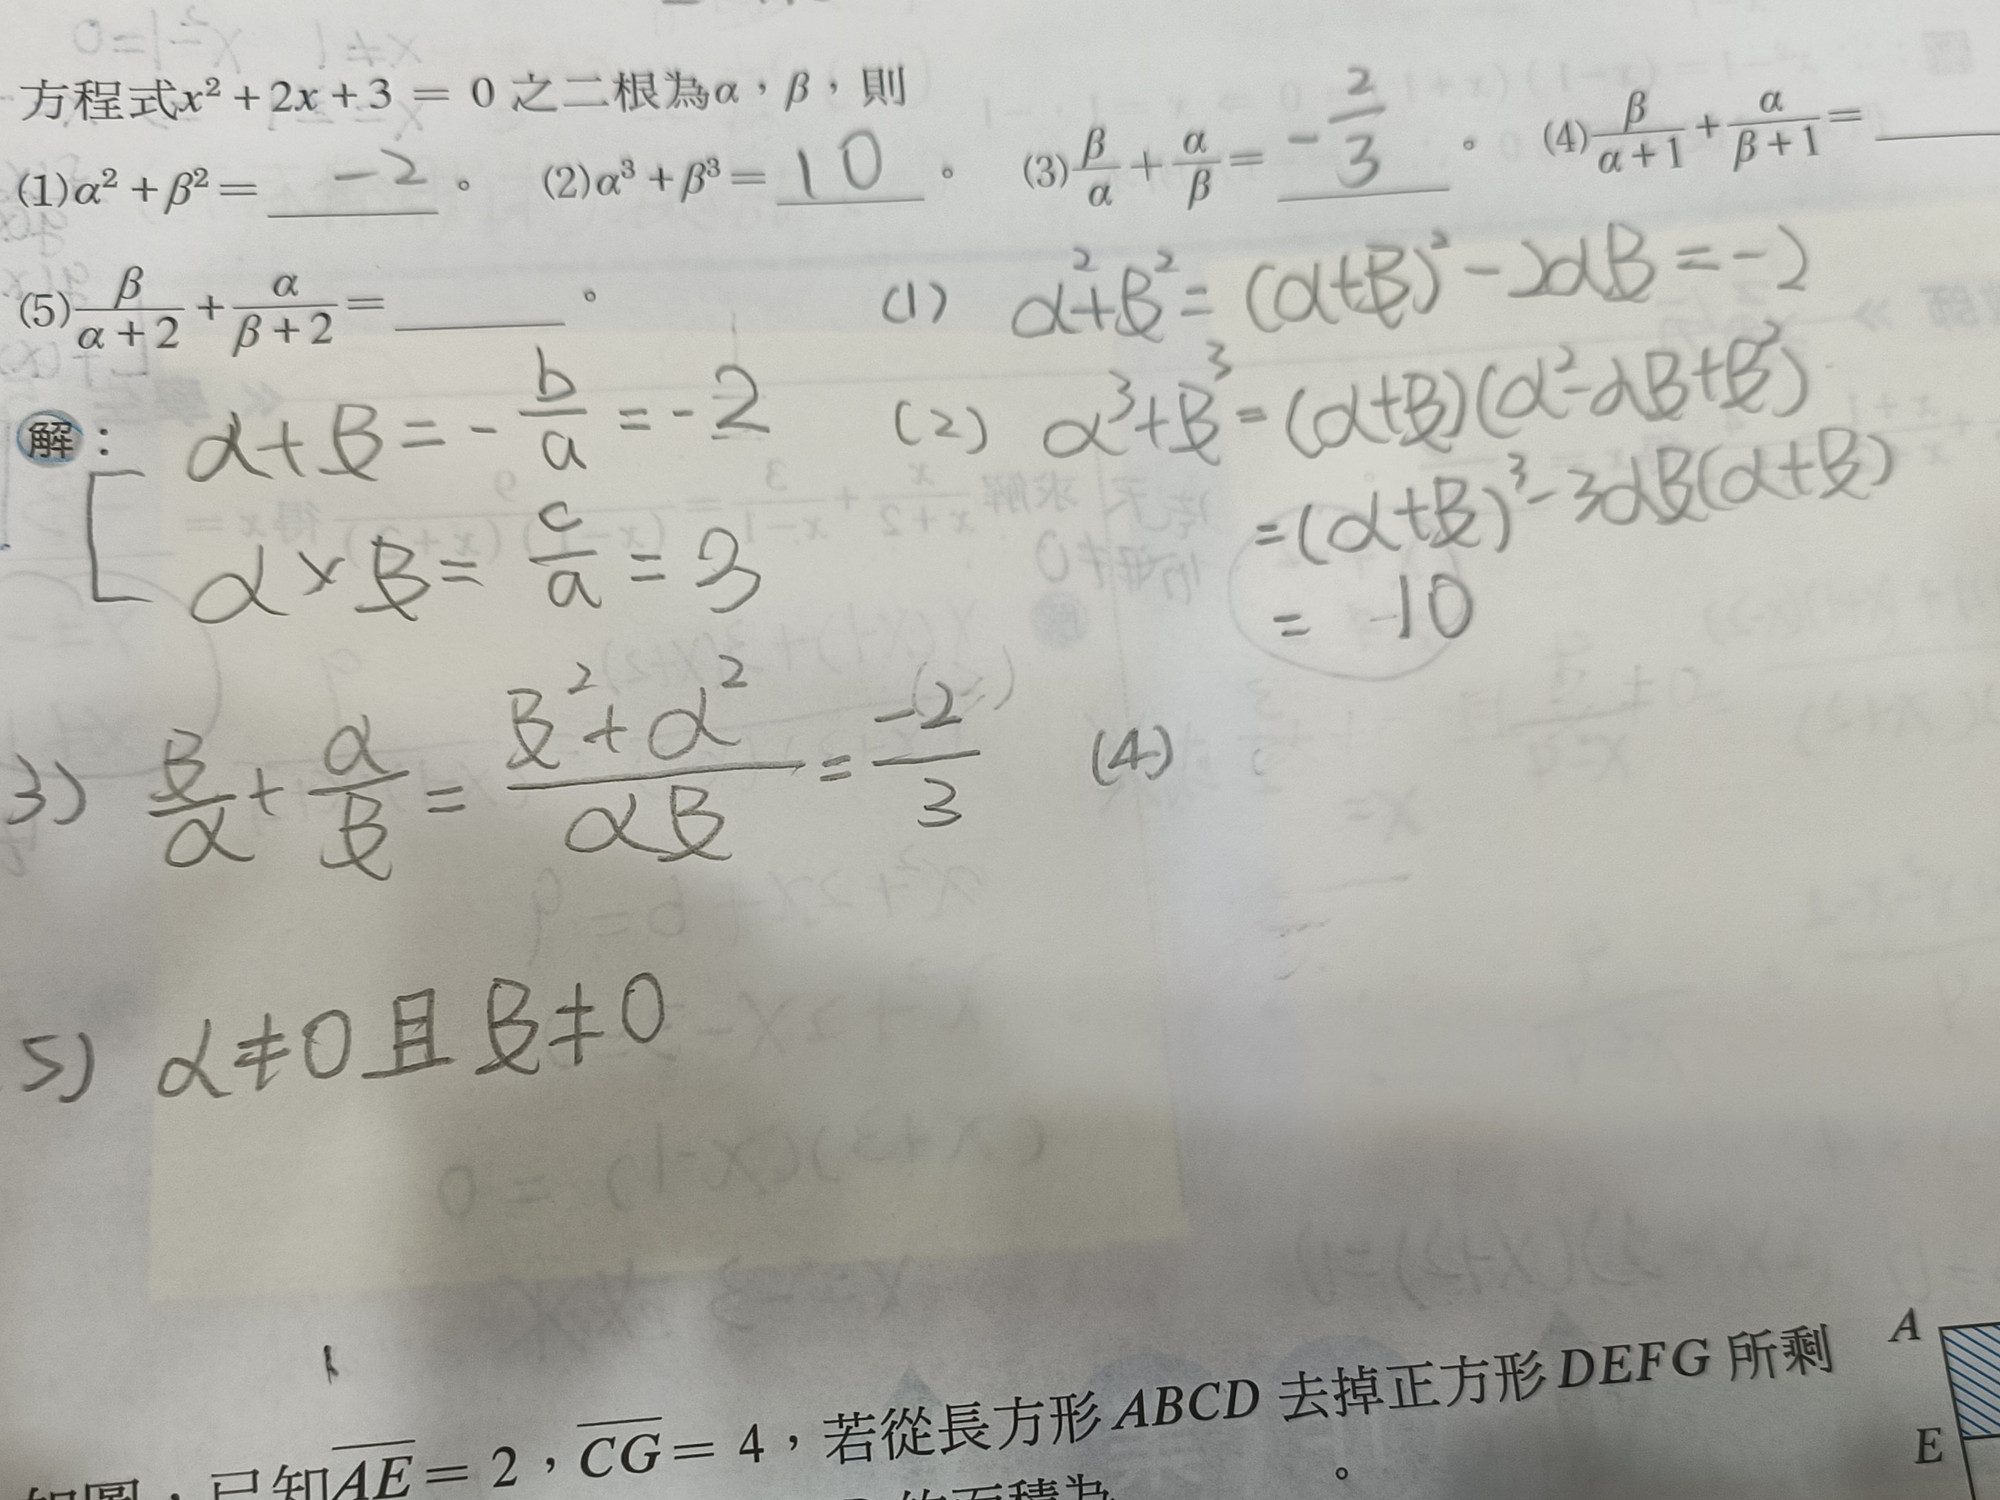 方程式x² + 2x + 3 = 0 之二根為α，β，則
(1)α² + β² = -2 。 (2)α³ + β³ = 10 。 (3)β/α + α/β = -2/3 。 (4)β/(α+1) + α/(β+1) =
(5)β/(α+2) + α/(β+2) = 。
(1) α²+β² = (α+β)² - 2αβ = -2
解： α+β = -b/a = -2
α×β = c/a = 3
(2) α³+β³ = (α+β)(α²-αβ+β²)
= (α+β)³ - 3αβ(α+β)
= 10
3) β/α + α/β = (β²+α²)/αβ = -2/3
(4)
5) α≠0 且 β≠0
已知AE = 2，CG = 4，若從長方形ABCD 去掉正方形DEFG 所剩
的面積為 。
A
E